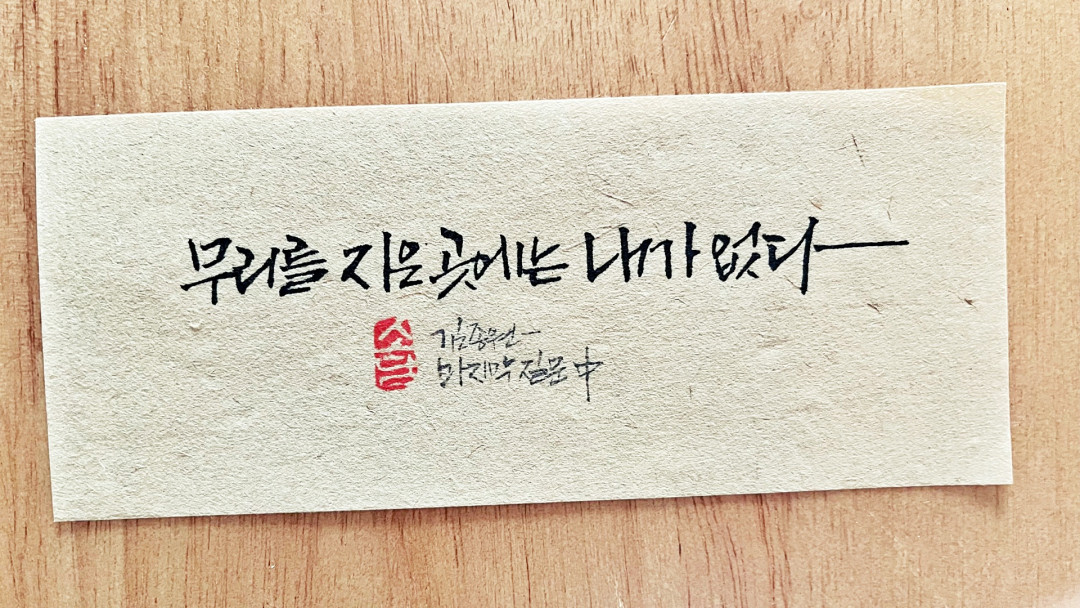 무리를 지은 곳에는 내가 없다
김종원-
마지막 질문 中